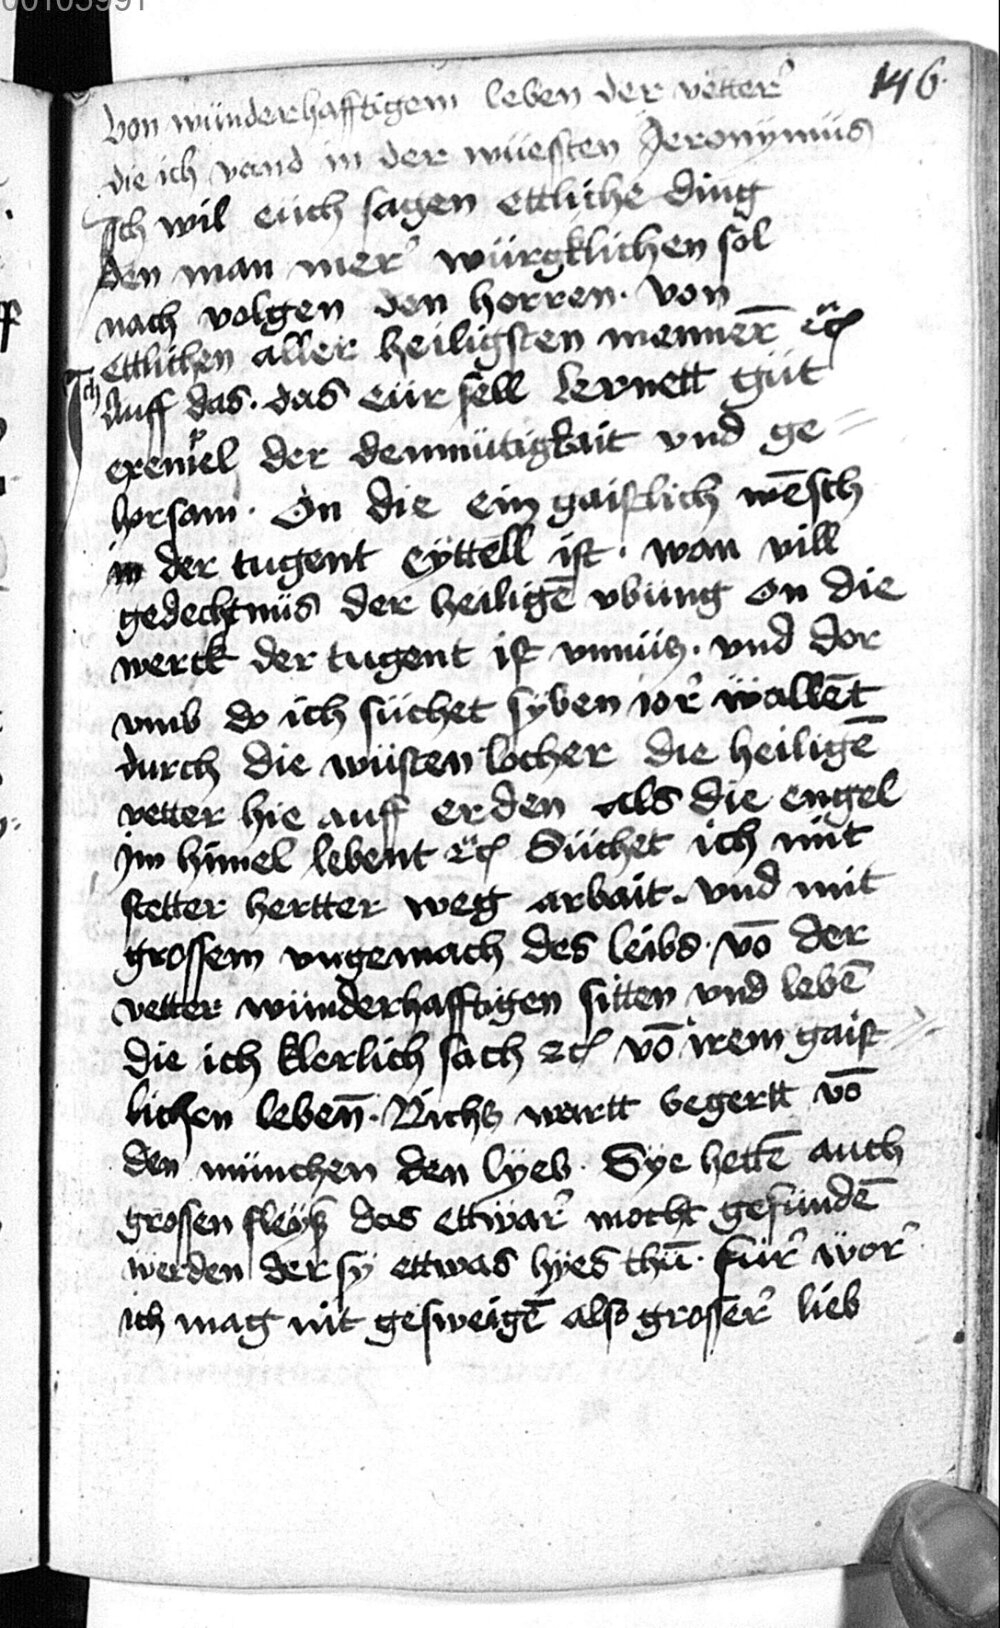 00105991
146.
von wünderhafftigem leben der vetter
die ich vand in der wüesten Jeronÿmüs
Ich wil eüch sagen ettliche ding
den man mer würgklichen sol
nach volgen den horren. von
ettlichen aller heiligsten menner̄ ꝛc
Auff das. das eür sell lernett güt
exempel der demmütigkait vnd ge=
horsam. On die ein gaistlich mēsch
in der tugent eÿttell ist. wan vill
gedechtnüs der heiligē vbüng on die
werck der tugent ist vnnüz. vnd dor
vmb do ich süchet sÿben ior wallēt
durch die wüsten locher die heiligē
vetter hie auff erden als die engel
jm himel lebent ꝛc Süchet ich mit
stetter hertter weg arbait. vnd mit
grossem vngemach des leibs. vō der
vetter wünderhafftigen sitten vnd lebē
die ich klerlich sach ꝛc vō irem gaist=
lichen lebēn. Nichz wartt begertt vō
den münchen den lÿeb. Sÿe hettē auch
grossen fleÿß das ettwar mocht gefündē
werden der sÿ ettwas hÿes thū. für wor
ich mag nit gesweigē also grosser lieb